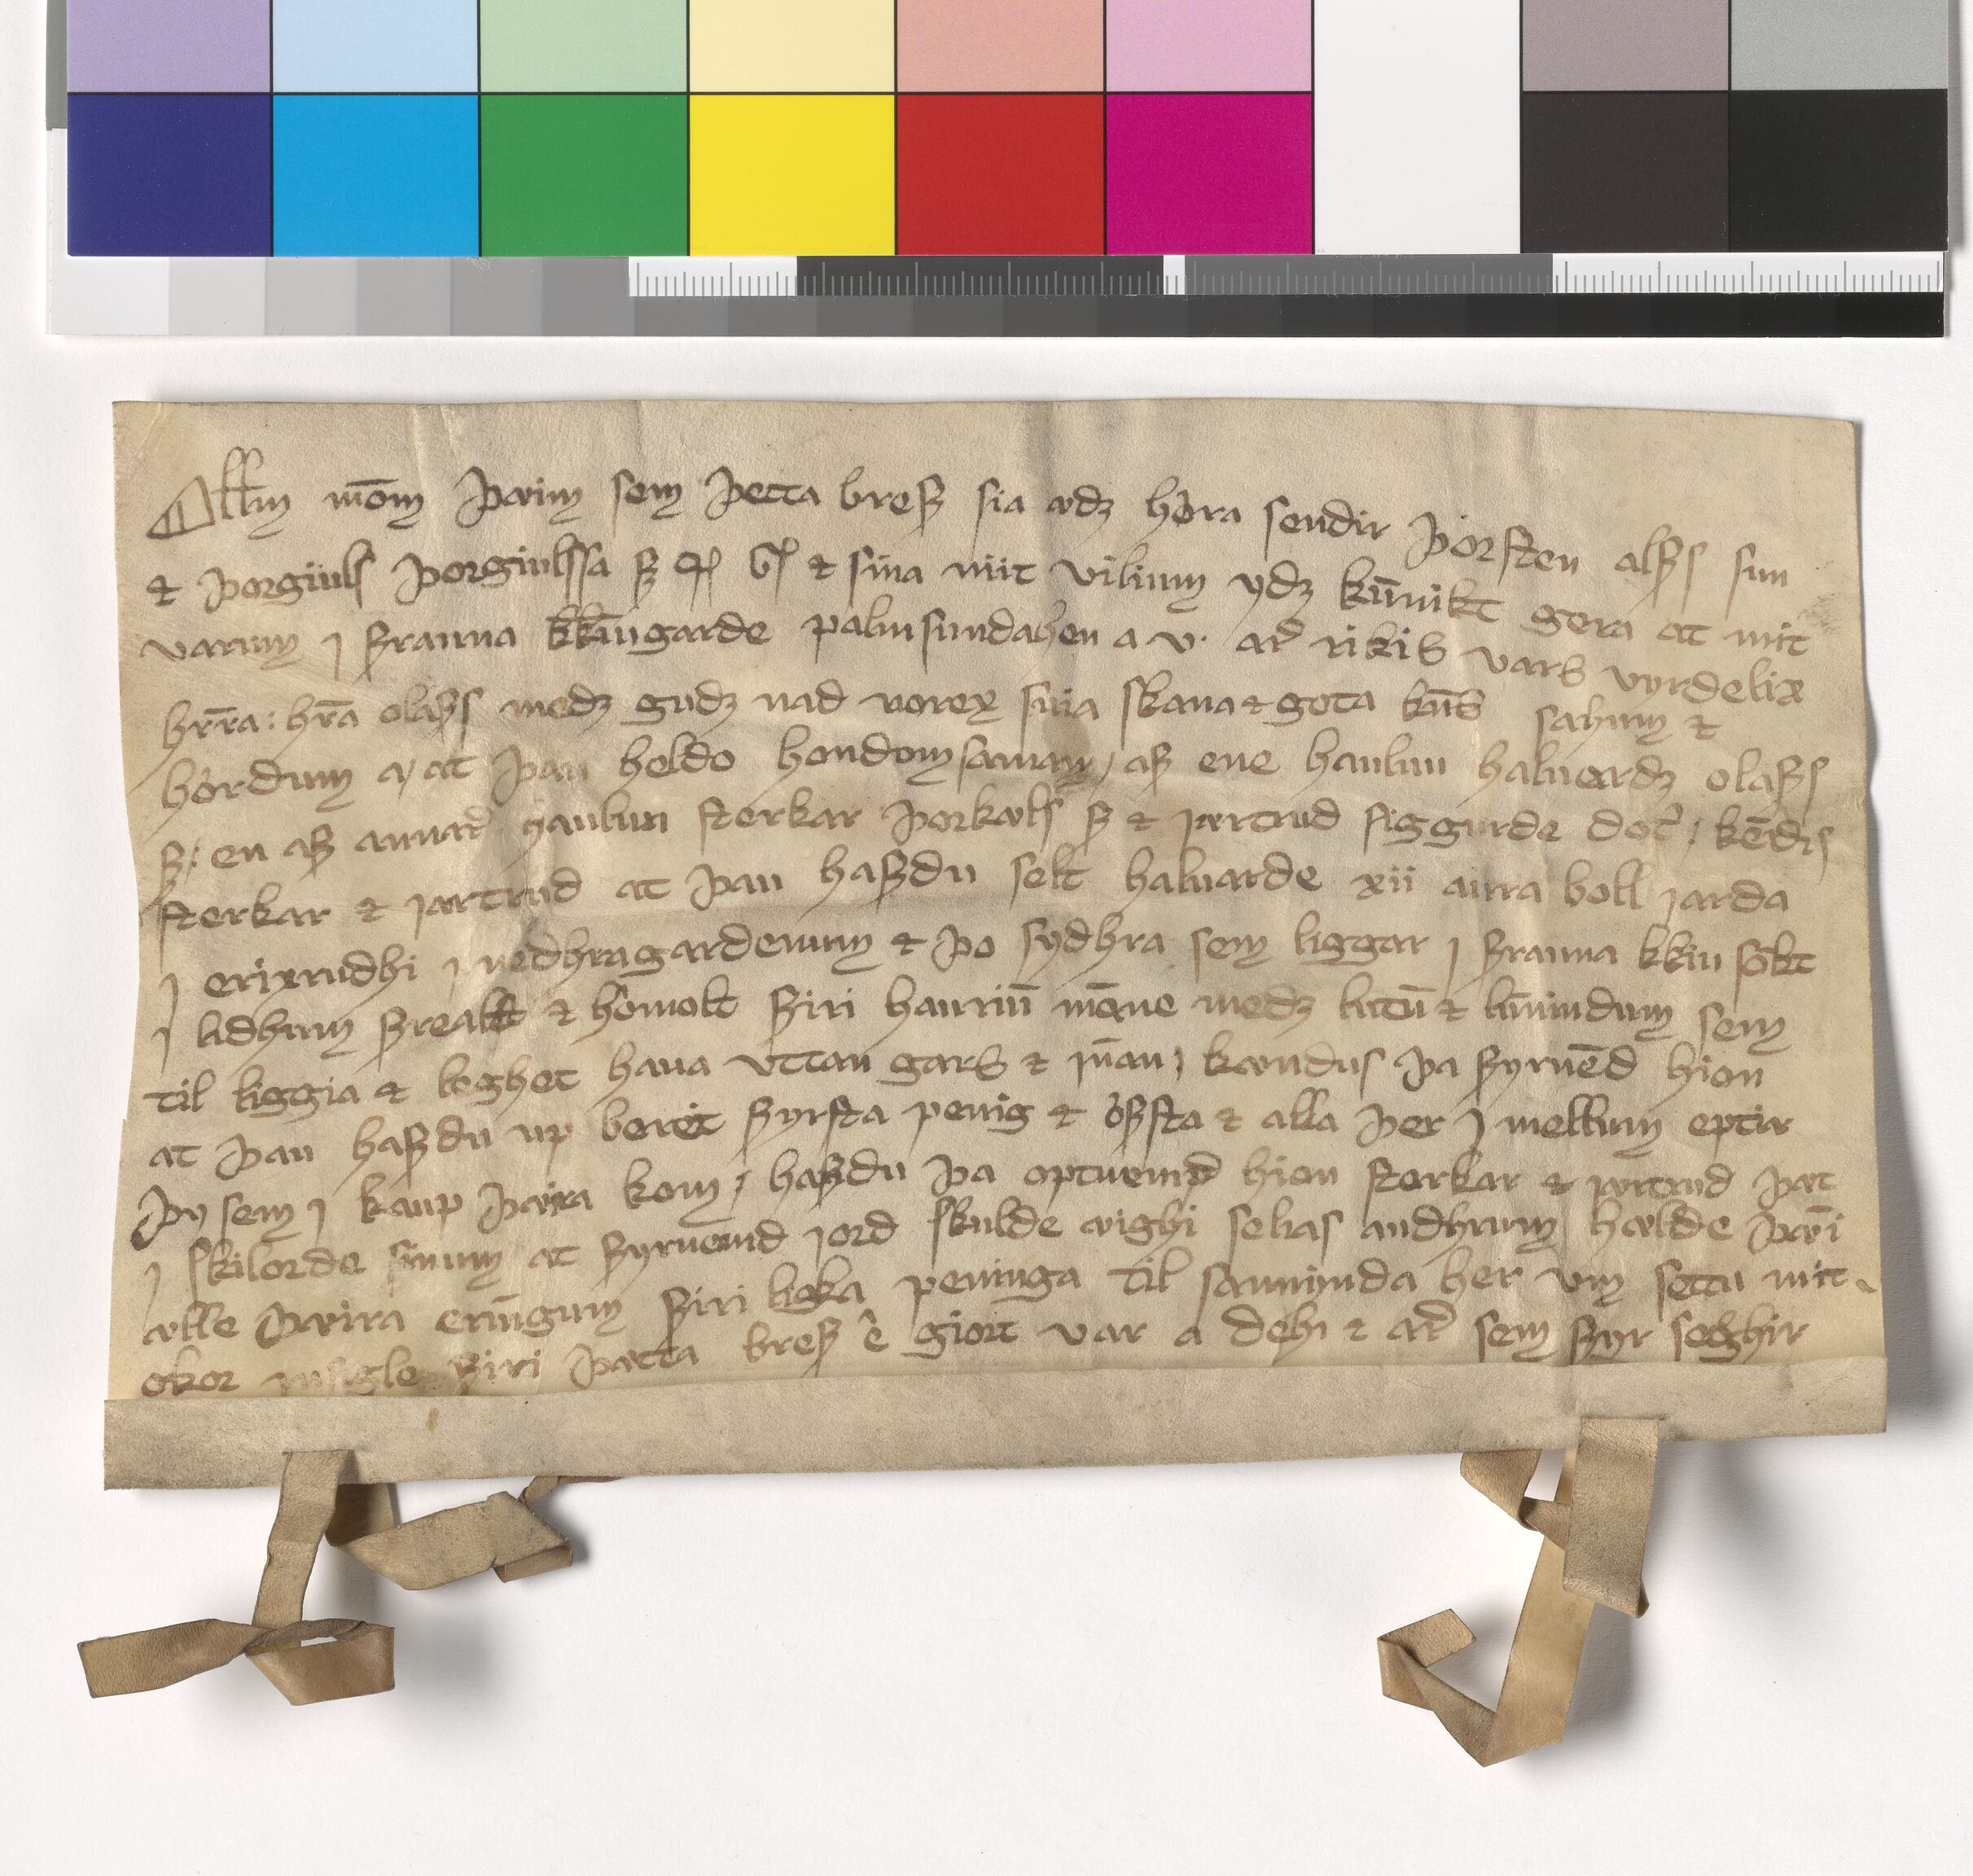 Allum mōm þæim sem þetta bref sia ædꝫ hòra sendir þorsten alfs sun
⁊ þorgiuls þorgiulssa s q gꝭ ⁊ sina mit vilium ydꝫ kūnikt gera at mit
varum j franna kkiugarde palmsundaghen a v. ar rikis vars vyrdelix
hrra: hra olafs medꝫ gudꝫ nad norex suia skana ⁊ gota kūs sahum ⁊
hòrdum a, at þau heldo hondom saman, af ene haluu haluardꝫ olafs
s, en af annar haluun sterkar þorkæls s ⁊ jartrud siggurde dot, kēdis
sterkar ⁊ jartrud at þau hafdu selt haluarde xii aura boll jarda
j erixrudhi j nedhragardenum ⁊ þo sydhra sem liggar j franna kkiu sokt
j lidhum frealst ⁊ hòmolt firi hauriū māne medꝫ lutū ⁊ lūnindum sem
til liggia ⁊ leghet haua vttan gars ⁊ jnan, kændus þa fyrnēd hion
at þau hafdu up boret fyrsta penig ⁊ òfsta ⁊ alla þer j mellum eptir
þy sem j kaup þæira kom, hafdu þa optnemd hion sterkar ⁊ jartrud þat
j skilorde sinum at fyrnemd jord skulde æighi selias andhrum hælde þæi
ælle þæira erūgium firi lika peninga til sannynda her vm settu mit
okor insigle firi þætta bref ē giort var a deghi ⁊ are sem fyr seghir